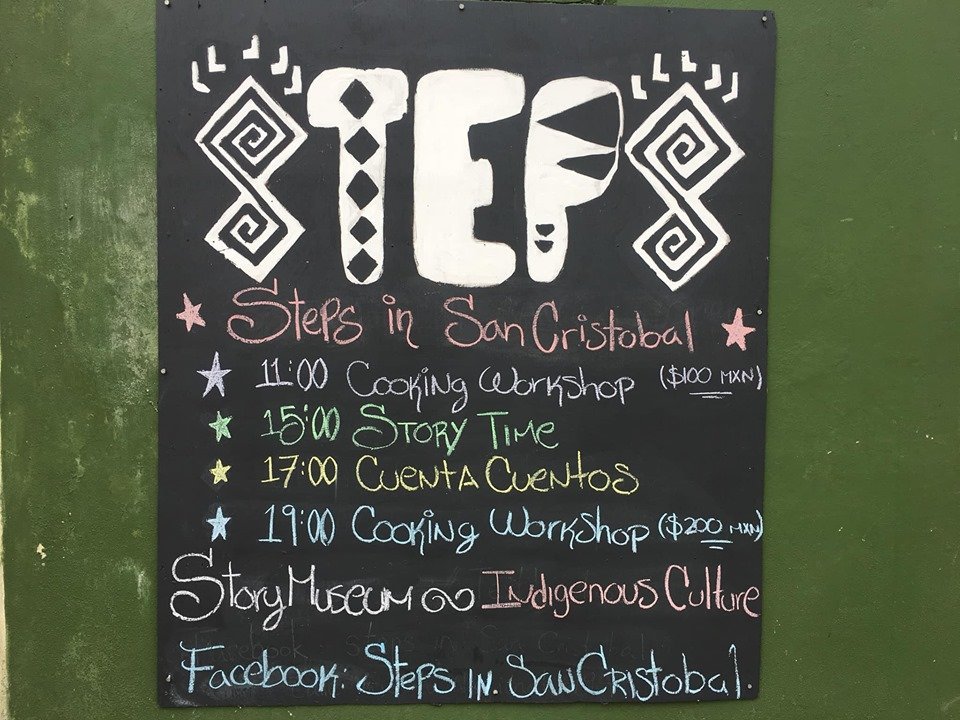 STEPS
Steps in San Cristobal
11:00 Cooking Workshop ($100 MXN)
15:00 Story Time
17:00 Cuenta Cuentos
19:00 Cooking Workshop ($200 MXN)
Story Museum Indigenous Culture
Facebook: Steps in San Cristobal